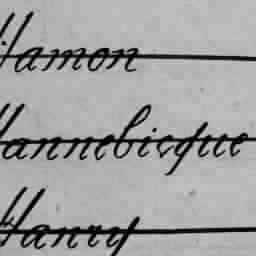 Hamon
Hannebicque
Hanry